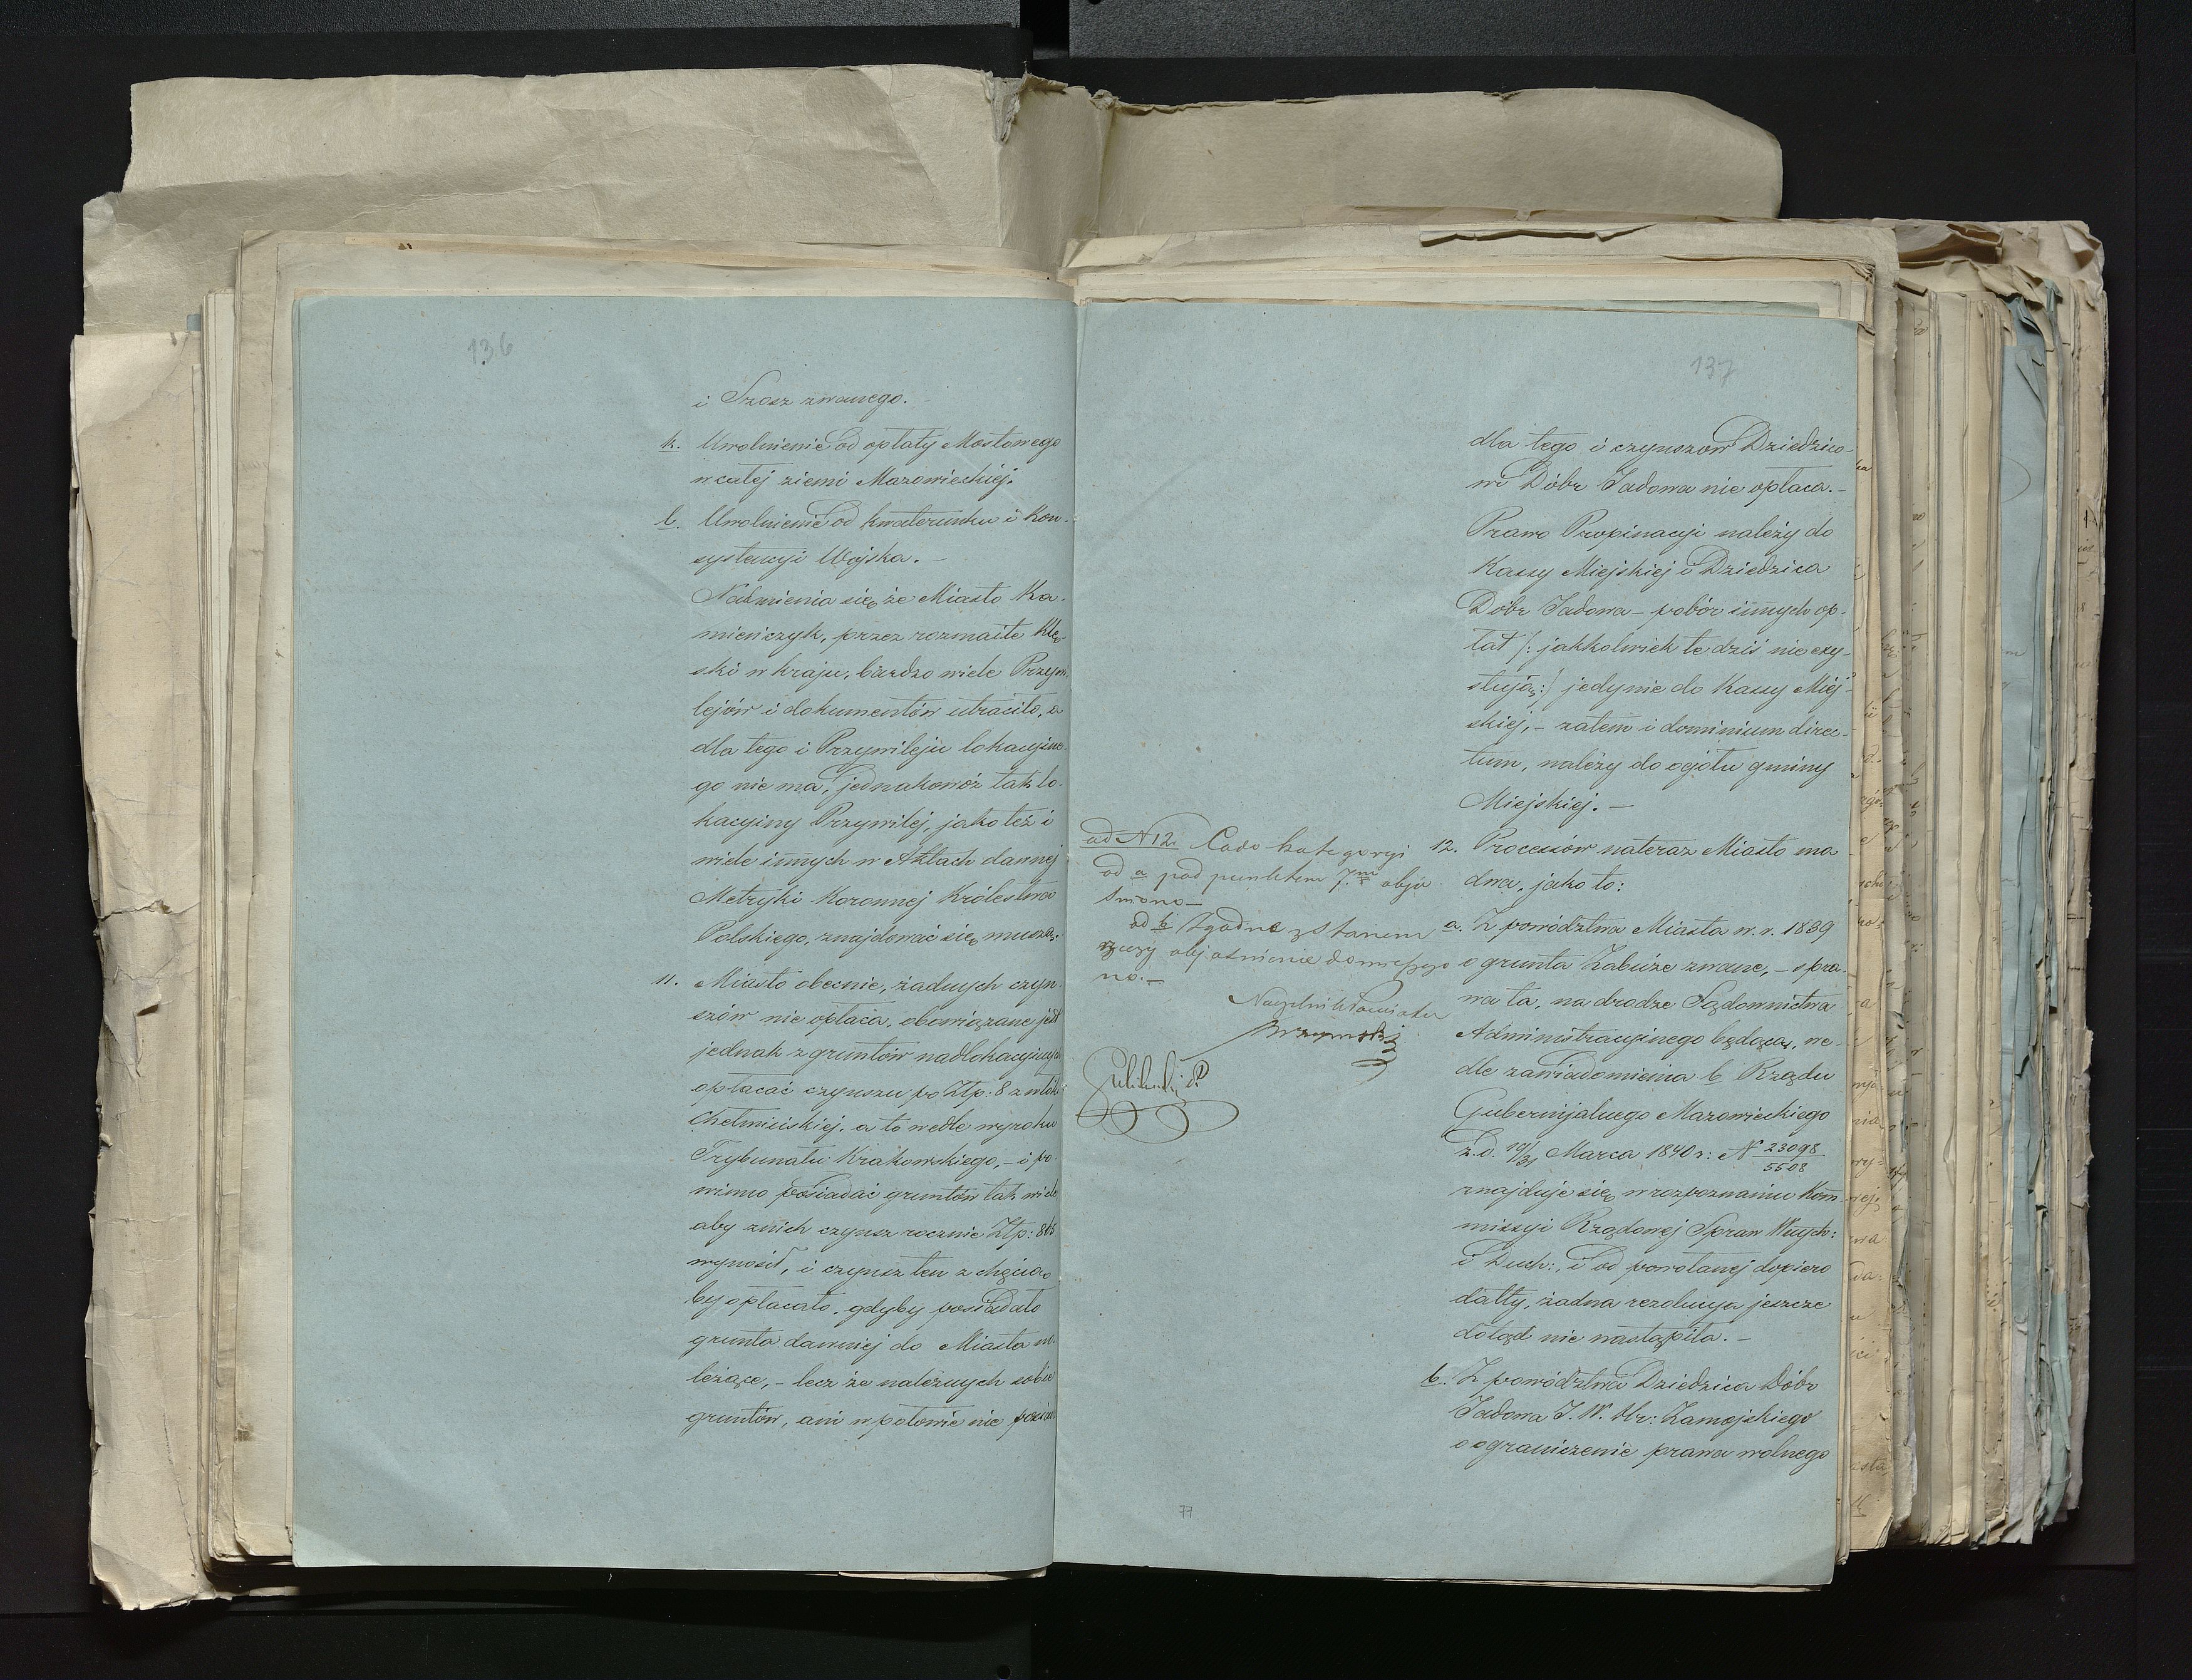 136
i Szosz zwanego. -
k. Uwolnienie od opłaty Mostowego
w całej ziemi Mazowieckiéj.
l. Uwolnienie od kwaterunku i Kon-
systencyi Wojska. -
Nadmienia się że Miasto Ka-
mieńczyk, przez rozmaite klę-
ski w kraju, bardzo wiele Przywi-
lejów i dokumentów utraciło, a
dla tego i Przywileju lokacyjne-
go nie ma, jednakowoż tak lo-
kacyiny Przywiléj, jako też i
wiele innych w Aktach dawnéj
Metryki Koronnej Królestwa
Polskiego, znajdować się muszą.
11. Miasto obecnie, żadnych czyn-
szów nie opłaca, obowiązane jest
jednak z gruntów nadlokacyjnych
opłacać czynszu po Złp: 8 z włóki
Chełmińskiej, a to wedle wyroku
Trybunału Krakowskiego, - i po-
winno posiadać gruntów tak wiele
aby z nich czynsz rocznie Złp: 865
wynosił, i czynsz ten z chęcią
by opłacało, gdyby posiadało
grunta dawniej do Miasta na-
leżące, - lecz że należnych sobie
gruntów, ani w połowie nie posiada
137
dla tego i czynszów Dziedzico-
wi Dóbr Jadowa nie opłaca. -
Prawo Propinacyi należy do
Kassy Miejskiéj i Dziedzica
Dóbr Jadowa - pobór innych op-
łat /: jakkolwiek te dziś nie exy-
stują :/ jedynie do Kassy Miej-
skiej, - zatem i dominium direc-
tum, należy do ogółu gminy
Miejskiej. -
12. Processów nateraz Miasto ma
dwa, jako to:
a. Z powództwa Miasta w r. 1839
o grunta Zabuże zwane, - spra-
wa ta, na drodze Sądownictwa
Administracyjnego będąca, we-
dle zawiadomienia b. Rządu
Gubernjalnego Mazowieckiego
z d. 19/31 Marca 1840 r: N 23098/5508
znajduje się w rozpoznaniu Kom-
missyi Rządowej Spraw Wnych:
i Duch:, i od powołanej dopiero
datty, żadna rezolucya jeszcze
dotąd nie nastąpiła. -
b. Z powództwa Dziedzica Dóbr
Jadowa J. W. Hr: Zamojskiego
o ograniczenie prawa wolnego
ad N 12. Co do kategoryi
ad a pod punktem 7.m obja-
śniono -
ad b Zgodne z stanem
rzeczy objaśnienie domieszczo
no. -
Naczelnik Powiatu
77